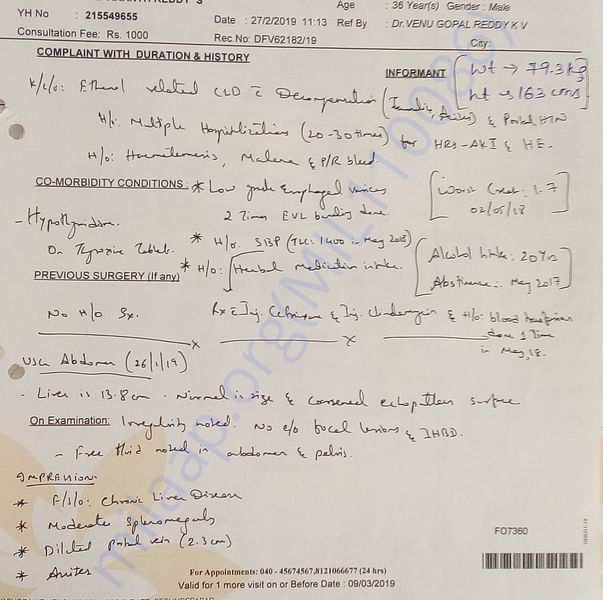 REDDY S
Age : 36 Year(s) Gender : Male
YH No : 215549655
Date : 27/2/2019 11:13 Ref By : Dr.VENU GOPAL REDDY K V
Consultation Fee: Rs. 1000
Rec.No: DFV62182/19
City:
COMPLAINT WITH DURATION & HISTORY
INFORMANT
Wt → 79.3 kg
ht → 163 cms
K/c/o: Ethanol related CLD c Decompensation (Jaundice, Ascites) & Portal HTN
H/o: Multiple Hospitalizations (20-30 times) for HRS-AKI & HE.
H/o: Hematemesis, Malena & P/R bleed.
CO-MORBIDITY CONDITIONS : * Low grade Esophageal varices
2 Times EVL banding done.
Worst Creat: 1.7
02/05/18
- Hypothyroidism.
On Thyroxine Tablets.
* H/o. SBP (TLC: 1400 in May 2018)
* H/o: Herbal Medication intake.
Alcohol Intake: 20 Yrs
Abstinence: May 2017
PREVIOUS SURGERY (If any)
No H/o Sx.
Rx c Inj. Ceftriaxone & Inj. Clindamycin & H/o: blood transfusion
done 1 Time
in May, 18.
USG Abdomen (26/1/19)
- Liver is 13.8cm. Normal in size & coarsened echopattern surface
On Examination: Irregularity noted. No e/o focal lesions & IHBD.
- Free fluid noted in abdomen & pelvis.
IMPRESSION:
* F/S/O: Chronic Liver Disease
* Moderate Splenomegaly
* Dilated portal vein (2.3cm)
* Ascites
FO7360
For Appointments: 040 - 45674567,8121066677 (24 hrs)
Valid for 1 more visit on or Before Date : 09/03/2019
milaap.org(MIL1110086)